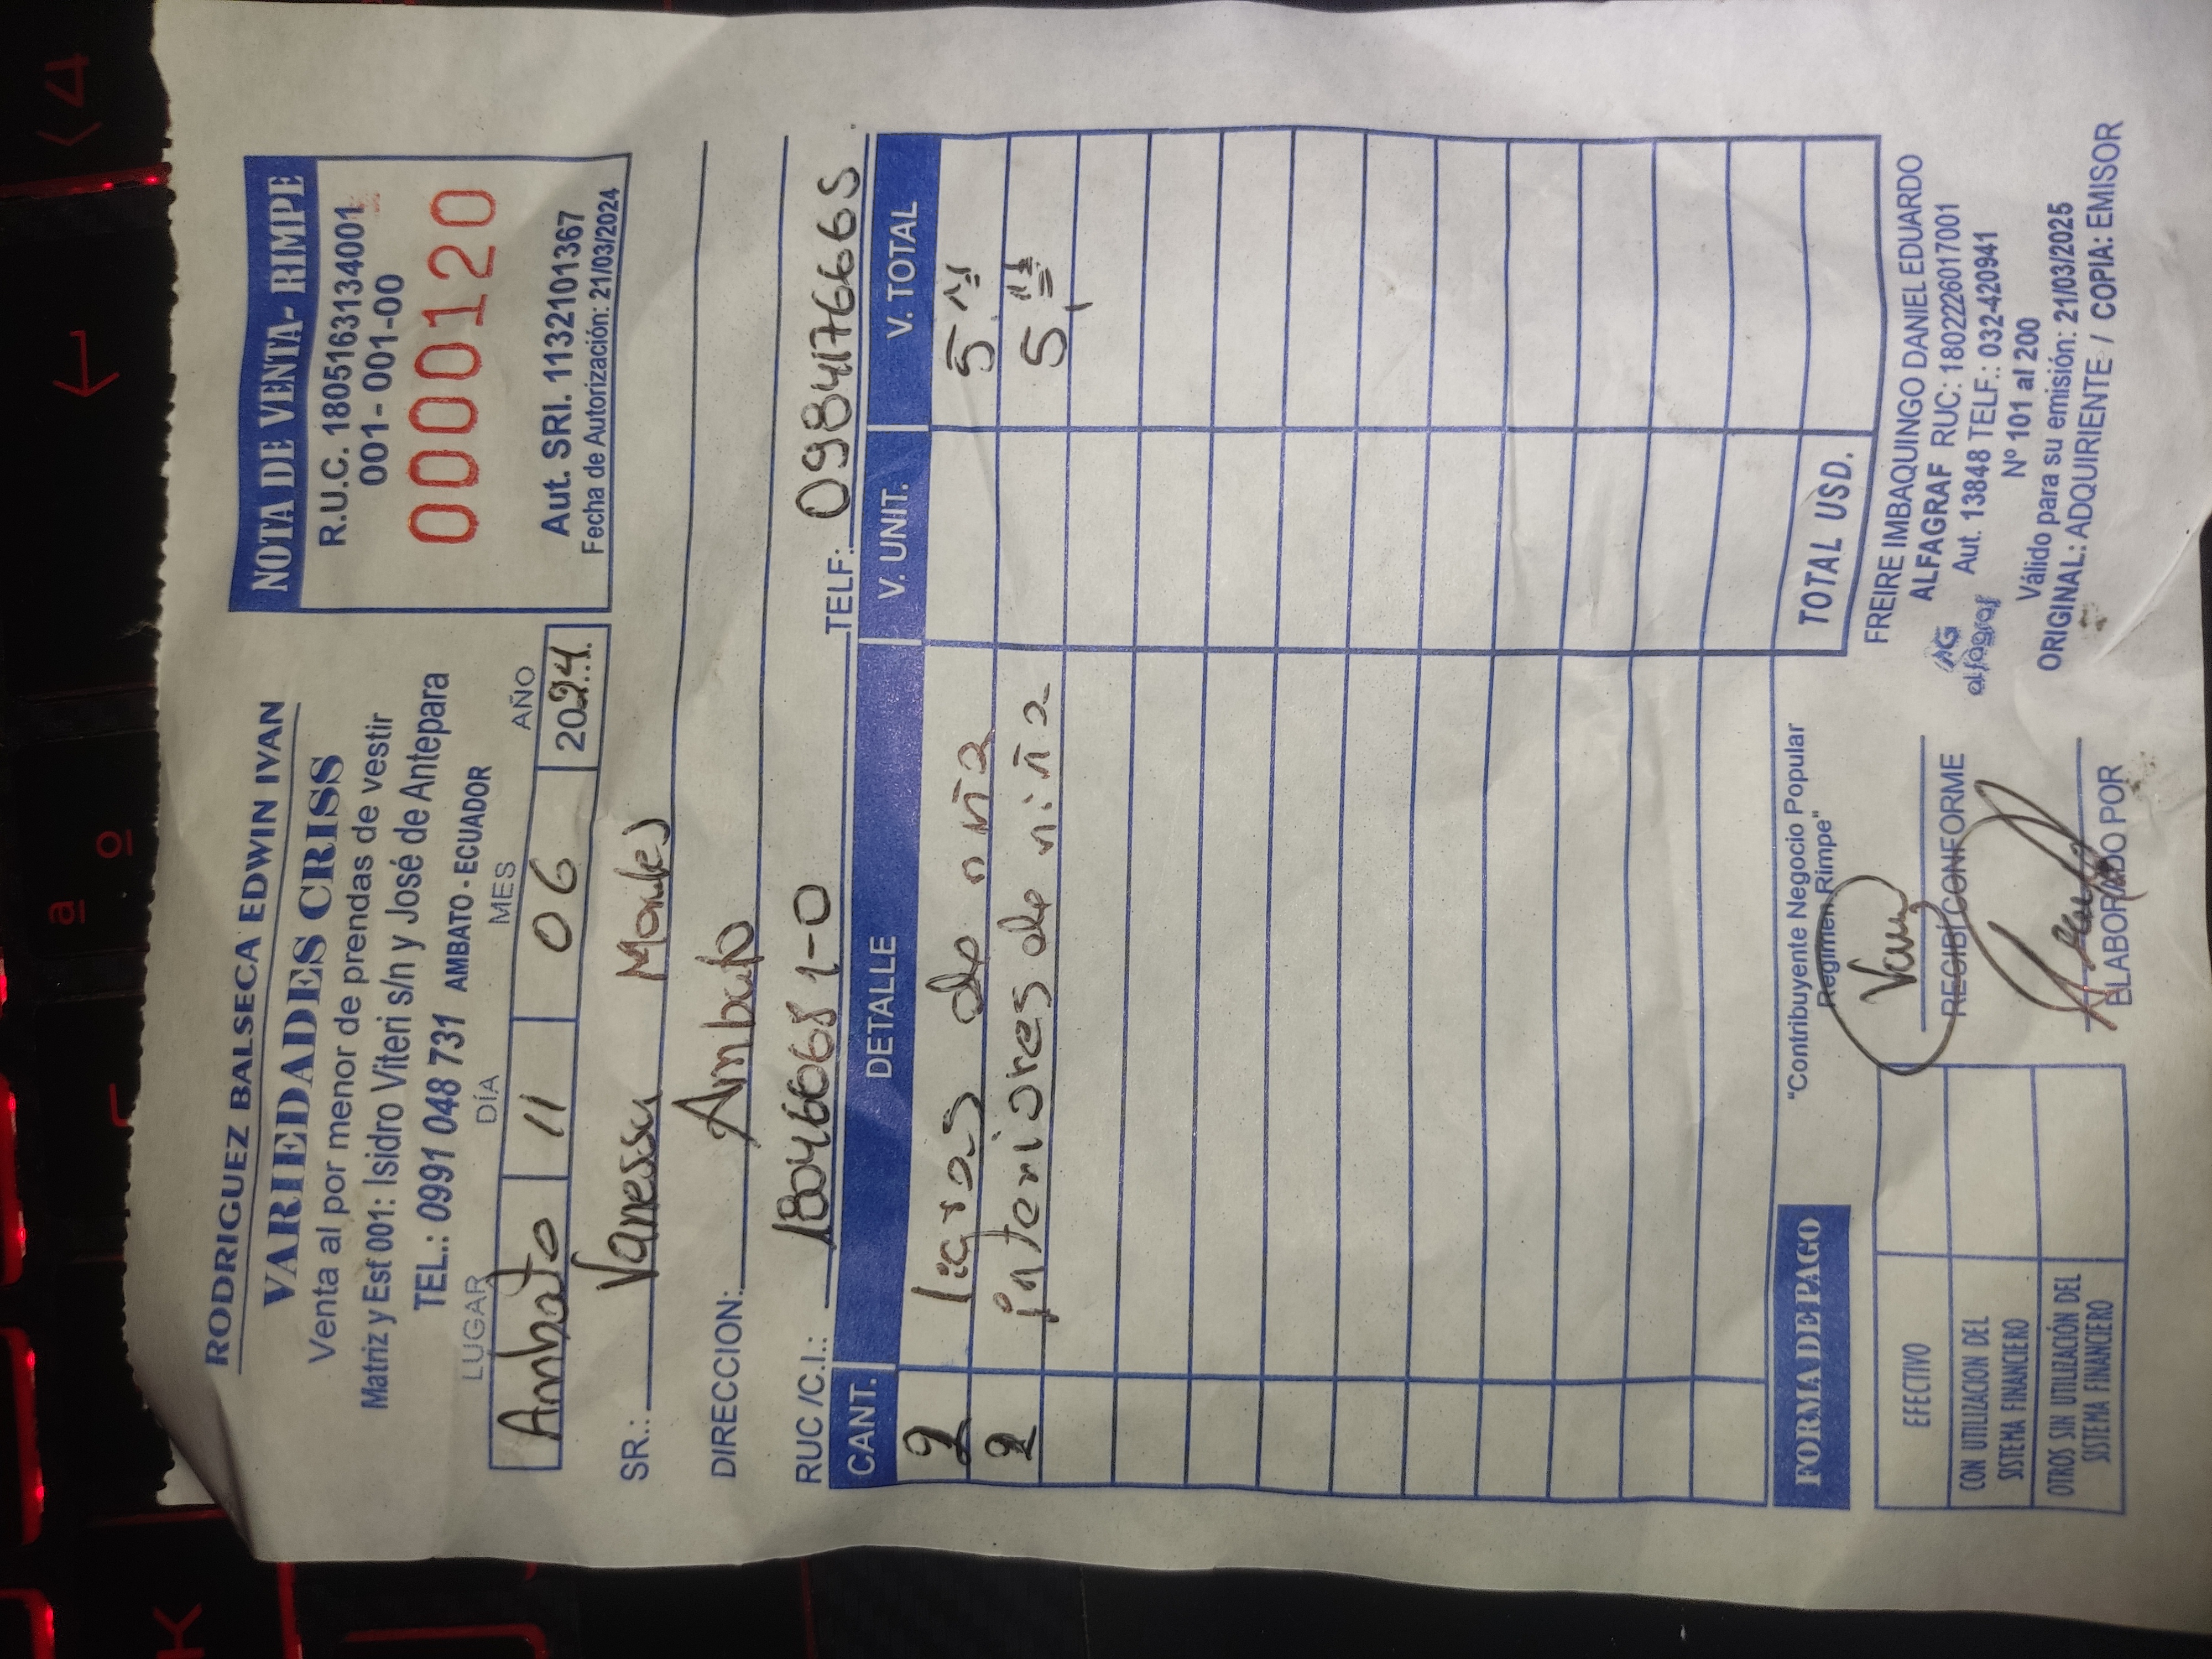 RODRIGUEZ BALSECA EDWIN IVAN
VARIEDADES CRISS
Venta al por menor de prendas de vestir
Matriz y Est 001: Isidro Viteri s/n y José de Antepara
TEL.: 0991 048 731 AMBATO - ECUADOR
NOTA DE VENTA- RIMPE
R.U.C. 1805163134001
001- 001-00
0000120
Aut. SRI. 1132101367
Fecha de Autorización: 21/03/2024
LUGAR DÍA MES AÑO
Ambato 11 06 2024
SR.: Vanessa
DIRECCION: Ambato
RUC /C.I.: 180466681-0 TELF: 0984176665
CANT. DETALLE V. UNIT. V. TOTAL
2 licras de niña 5.
2 interiores de niña 5,
FORMA DE PAGO
"Contribuyente Negocio Popular
Regimen Rimpe"
TOTAL USD.
EFECTIVO
CON UTILIZACION DEL
SISTEMA FINANCIERO
OTROS SIN UTILIZACIÓN DEL
SISTEMA FINANCIERO
RECIBÍ CONFORME
ELABORADO POR
FREIRE IMBAQUINGO DANIEL EDUARDO
AG
alfagraf
ALFAGRAF RUC: 1802226017001
Aut. 13848 TELF.: 032-420941
Nº 101 al 200
Válido para su emisión: 21/03/2025
ORIGINAL: ADQUIRIENTE / COPIA: EMISOR
ª
º
K